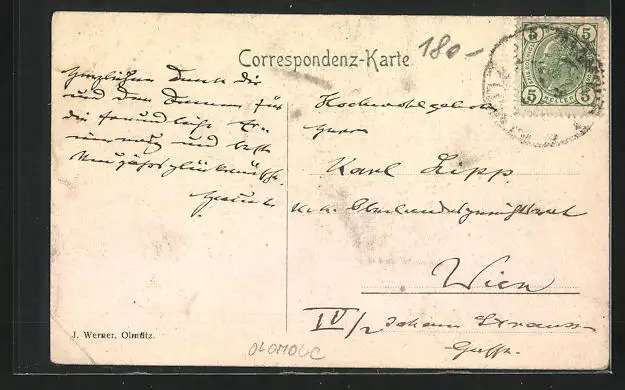 Correspondenz-Karte
180-
5 5
5 5
HELLER
Herzlichen Dank dir
und den Damen für
die freundliche Er-
innerung und beste
Neujahrsglückwünsche.
Hochwohlgeboren
Herrn
Karl Lipp
k.k. Oberlandesgerichtsrat
Wien
IV/2 Johann Strauss
Gasse.
J. Werner, Olmütz.
OLOMOUC